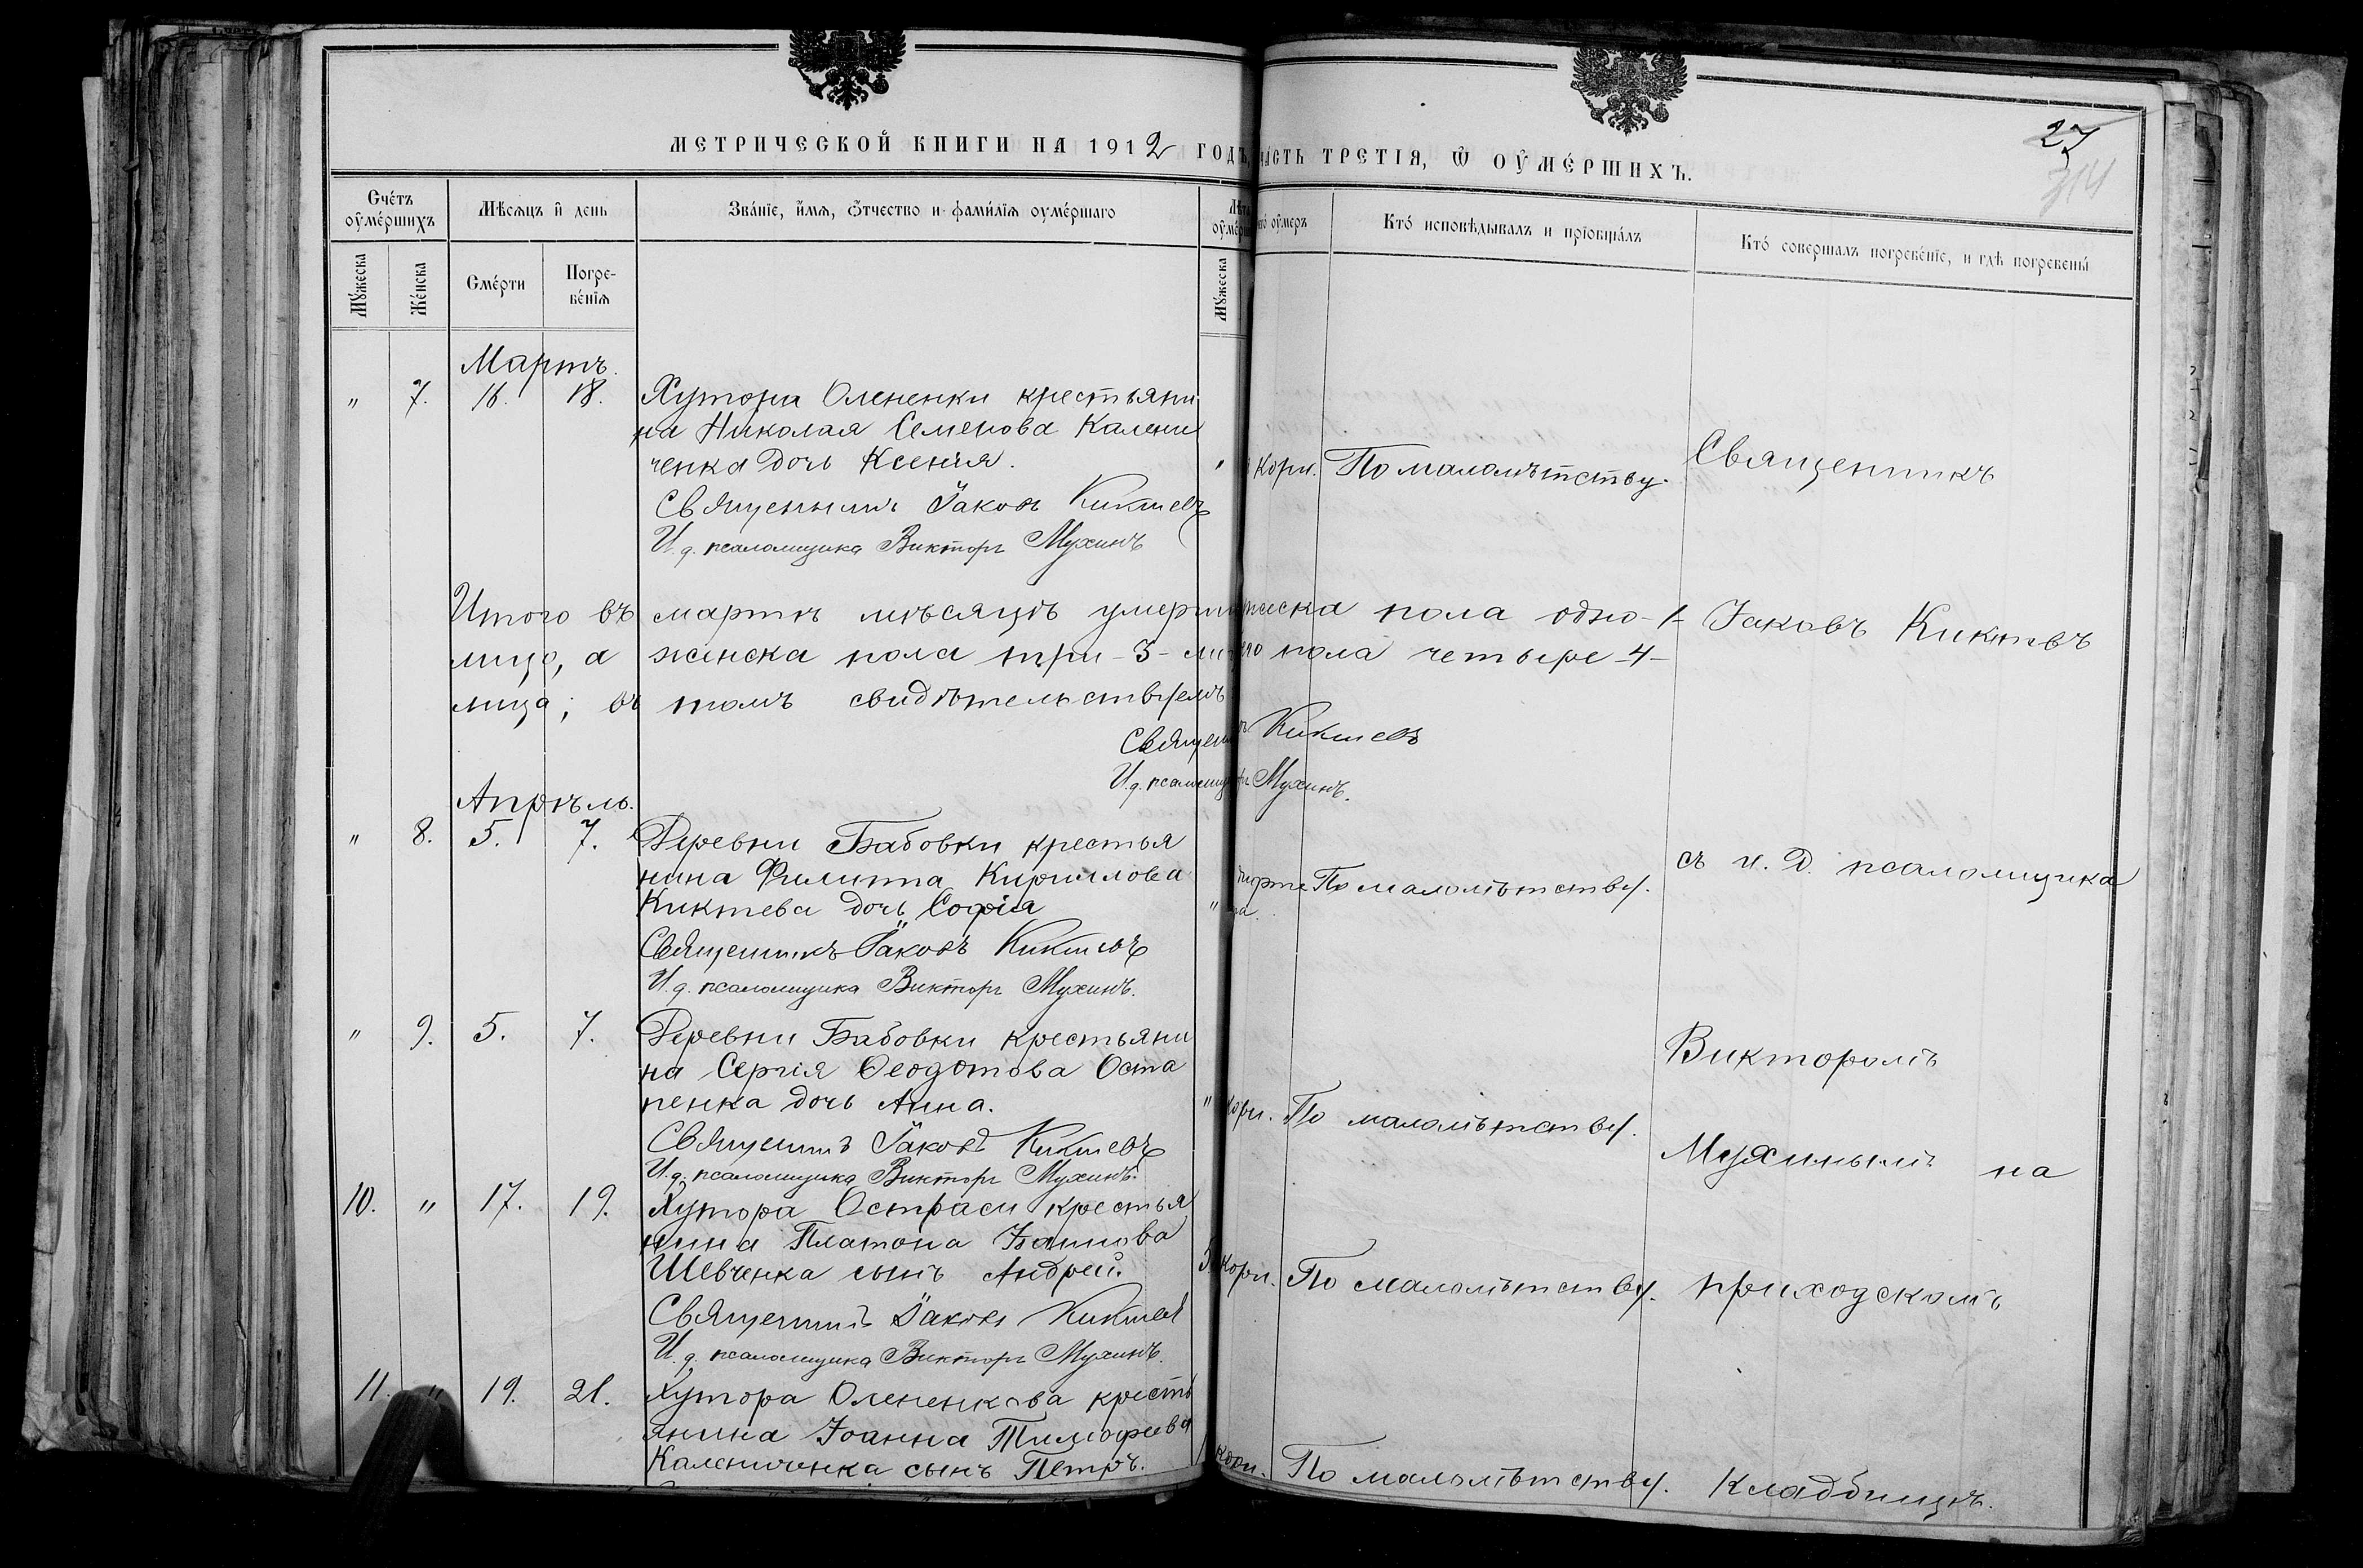 МЕТРИЧЕСКОЙ КНИГИ НА 1912 ГОДЪ, ЧАСТЬ ТРЕТІЯ, Ѿ ОУМЕРШИХЪ.
27
314
Счетъ оумершихъ
Мѣсяцъ и день
Званіе, имя, отчество и фамилія оумершаго
Лѣта
оумерш
чего оумеръ
Кто исповѣдывалъ и пріобщалъ
Кто совершалъ погребеніе, и гдѣ погребены
Мужеска
Женска
Смерти
Погребенія
Мужеска
Мартъ.
" 7. 16. 18. Хутора Олененки крестьяни
на Николая Семенова Калени
ченка дочь Ксенія. " корн. По малолѣтству. Священникъ
Священникъ Іаковъ Киктевъ
И. д. псаломщика Викторъ Мухинъ
Итого въ мартѣ мѣсяцѣ умерш жеска пола одно -1- Іаковъ Киктевъ
лицо, а женска пола три -3- ли го пола четыре -4-
лица; въ томъ свидѣтельствуемъ
Священ Киктевъ
И. д. псаломщ Мухинъ.
Апрѣль.
" 8. 5. 7. Деревни Бабовки крестья
нина Филиппа Кириллова По малолѣтству. съ и. д. псаломщика
Киктева дочь Софія "
Священникъ Іаковъ Киктевъ
И. д. псаломщика Викторъ Мухинъ.
" 9. 5. 7. Деревни Бабовки крестьяни
на Сергія Ѳеодотова Оста Викторомъ
пенка дочь Анна. " корн. По малолѣтству.
Священникъ Іаковъ Киктевъ
И. д. псаломщика Викторъ Мухинъ. Мухинымъ на
10. " 17. 19. Хутора Остраси крестья
нина Платона Іоаннова
Шевченка сынъ Андрей. корн. По малолѣтству. приходскомъ
Священникъ Іаковъ Киктевъ
И. д. псаломщика Викторъ Мухинъ.
11. " 19. 21. Хутора Олененкова кресть
янина Іоанна Тимофеева
Калениченка сынъ Петръ. корн. По малолѣтству. кладбищѣ.